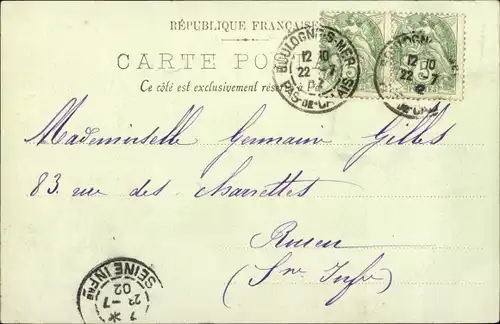 RÉPUBLIQUE FRANÇAISE
CARTE PO
Ce côté est exclusivement réservé à
BOULOGNE-S-MER
12 30
22 7
PAS-DE-CALAIS
BOULOGNE
12
22 7
5
Mademoiselle Germain Gilles
83. rue des Charrettes
Rouen
(Sne Infre)
7
23 -7
02
SEINE INFRE